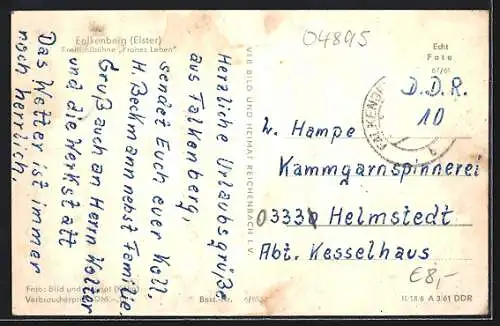 Falkenberg (Elster)
Freilichtbühne „Frohes Leben"
Herzliche Urlaubsgrüße
aus Falkenberg,
sendet Euch euer Koll.
H. Beckmann nebst Familie.
Gruß auch an Herrn Wolter
und die Werkstatt
Das Wetter ist immer
noch herrlich.
Foto: Bild und
Verbraucherpr
Best.-Nr.
VEB BILD UND HEIMAT REICHENBACH I. V.
04895
Echt
Foto
67/61
D.D.R.
10
FALKENBE
W. Hampe
Kammgarnspinnerei
0333 Helmstedt
Abt. Kesselhaus
€8,-
A 3/61 DDR